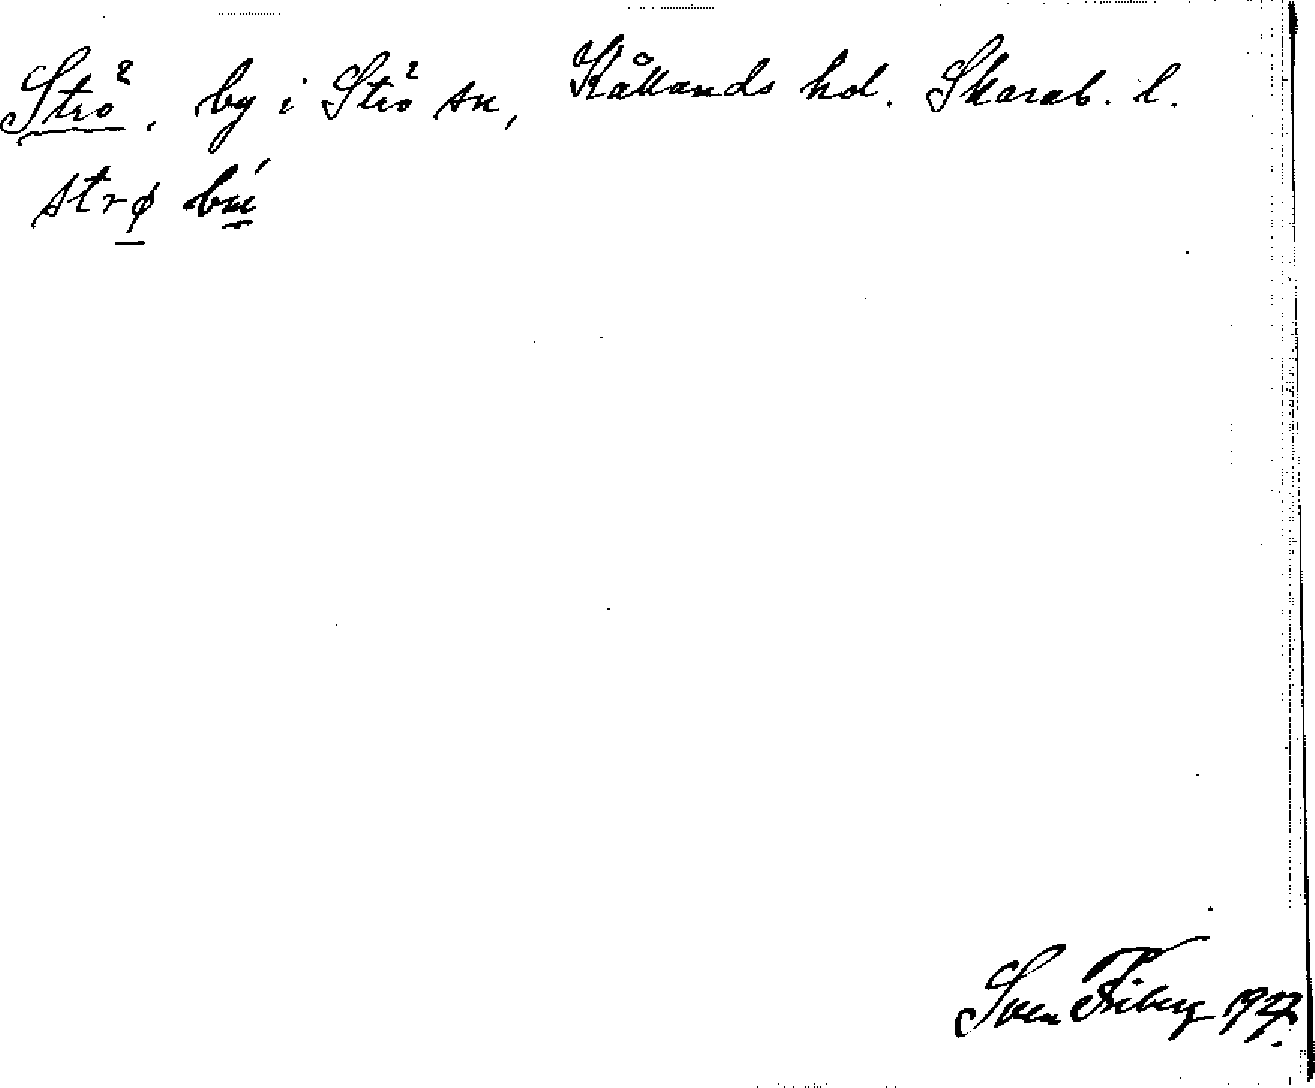 Strö, by i Strö sn, Kållands hd. Skarab. l.
strø bú
Sven Friberg 1927.